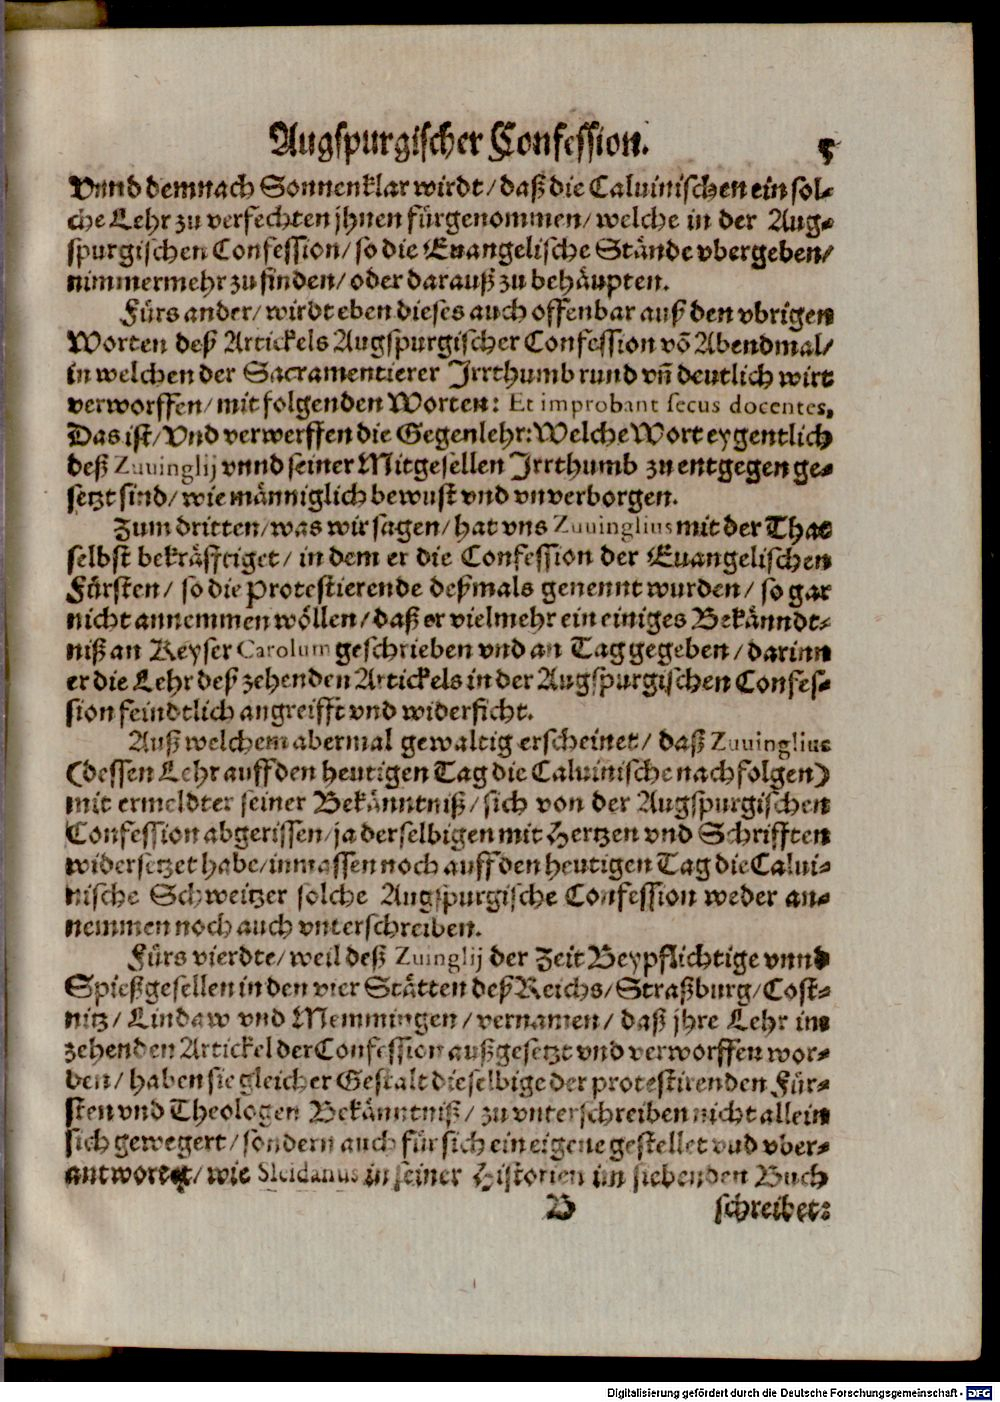 Augspurgischer Confession. 5
Vnnd demnach Sonnenklar wirdt/ daß die Caluinischen ein sol-
che Lehr zu verfechten jhnen fürgenommen/ welche in der Aug-
spurgischen Confession/ so die Euangelische Stände vbergeben/
nimmermehr zu finden/ oder darauß zu behäupten.
Fürs ander/ wirdt eben dieses auch offenbar auß den vbrigen
Worten deß Artickels Augspurgischer Confession võ Abendmal/
in welchen der Sacramentierer Irrthumb rund vñ deutlich wirt
verworffen/ mit folgenden Worten: Et improbant secus docentes,
Das ist/ Vnd verwerffen die Gegenlehr: Welche Wort eygentlich
deß Zuuinglij vnnd seiner Mitgesellen Irrthumb zu entgegen ge-
setzt sind/ wie männiglich bewust vnd vnverborgen.
Zum dritten/ was wir sagen/ hat vns Zuuinglius mit der That
selbst bekräfftiget/ in dem er die Confession der Euangelischen
Fürsten/ so die Protestierende deßmals genennt wurden/ so gar
nicht annemmen wöllen/ daß er vielmehr ein einiges Bekänndt-
niß an Keyser Carolum geschrieben vnd an Tag gegeben/ darinn
er die Lehr deß zehenden Artickels in der Augspurgischen Confes-
sion feindtlich angreifft vnd widerficht.
Auß welchem abermal gewaltig erscheinet/ daß Zuuinglius
(dessen Lehr auff den heutigen Tag die Caluinische nachfolgen)
mit ermeldter seiner Bekänntniß/ sich von der Augspurgischen
Confession abgerissen/ ja derselbigen mit Hertzen vnd Schrifften
widersetzet habe/ inmassen noch auff den heutigen Tag die Calui-
nische Schweitzer solche Augspurgische Confession weder an-
nemmen noch auch vnterschreiben.
Fürs vierdte/ weil deß Zuinglij der Zeit Beypflichtige vnnd
Spießgesellen in den vier Stätten deß Reichs/ Straßburg/ Cost-
nitz/ Lindaw vnd Memmingen/ vernamen/ daß jhre Lehr im
zehenden Artickel der Confession außgesetzt vnd verworffen wor-
den/ haben sie gleicher Gestalt dieselbige der protestirenden Für-
sten vnd Theologen Bekänntniß/ zu vnterschreiben nicht allein
sich gewegert/ sondern auch für sich ein eigene gestellet vnd vber-
antwortet/ wie Sleidanus in seiner Historien im siebenden Buch
B schreibet:
Digitalisierung gefördert durch die Deutsche Forschungsgemeinschaft - DFG